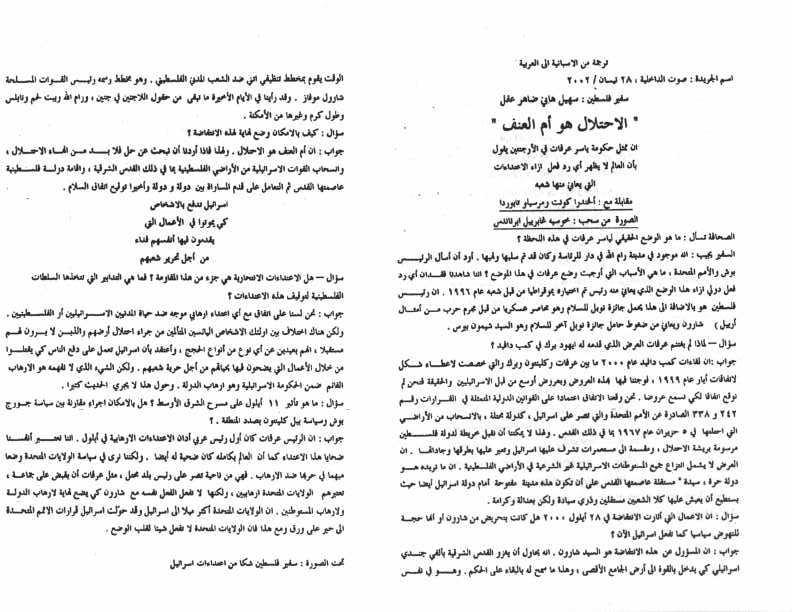 ترجمة من الاسبانية الى العربية
اسم الجريدة : صوت الداخلية ، ٢٨ نيسان / ٢٠٠٢
سفير فلسطين : سهيل هاني ضاهر عقل
" الاحتلال هو أم العنف "
ان ممثل حكومة ياسر عرفات في الأرجنتين يقول
بأن العالم لا يظهر أي رد فعل ازاء الاعتداءات
التي يعاني منها شعبه
مقابلة مع : أليخندوا كونت ومرسيلو تابوردا
الصورة من سحب : خوسيه غابرييل ايرنانديس
الصحافة تسأل : ما هو الوضع الحقيقي لياسر عرفات في هذه اللحظة ؟
السفير يجيب : انه موجود في مدينة رام الله في دار للرئاسة وكان قد تم سلبها ونهبها . أود أن أسأل الرئيس
بوش والأمم المتحدة ، ما هي الأسباب التي أوجبت وضع عرفات في هذا الموضع ؟ اننا شاهدنا فقدان أي رد
فعل دولي ازاء هذا الوضع الذي يعاني منه رئيس تم اختياره ديموقراطيا من قبل شعبه عام ١٩٩٦ . ان رئيس
فلسطين هو بالاضافة الى هذا يحمل جائزة نوبل للسلام وهو محاصر عسكريا من قبل مجرم حرب من أمثال
أرييل ) شارون ويعاني من ضغوط حامل جائزة نوبل آخر للسلام وهو السيد شيمون بيرس .
سؤال – لماذا لم يغتنم عرفات العرض الذي قدمه له ايهود براك في كمب دافيد ؟
جواب : ان لقاءات كمب دافيد عام ٢٠٠٠ ما بين عرفات وكلينتون وبرك والتي خصصت لاعطاء شكل
لاتفاقات أيار عام ١٩٩٩ ، فوجئنا فيها بهذه العروض وبعروض أوسع من قبل الاسرائيليين والحقيقة فنحن لم
نوقع اتفاقا لكي نسمع عروضا . نحن وقعنا الاتفاق اعتمادا على القوانين الدولية المتمثلة في القرارات رقم
٢٤٢ و ٣٣٨ الصادرة عن الأمم المتحدة والتي تصر على اسرائيل ، كدولة محتلة ، بالانسحاب من الأراضي
التي احتلتها في ٥ حزيران عام ١٩٦٧ بما في ذلك القدس . ولهذا لا يمكننا أن نقبل خريطة لدولة فلسطين
مرسومة بريشة الاحتلال ، ومقسمة الى مستعمرات تشرف عليها اسرائيل وتعبر عليها بطرقها وجاداتها . ان
العرض لا يشمل انتزاع جميع المستوطنات الاسرائيلية غير الشرعية في الأراضي الفلسطينية . ان ما نريده هو
دولة حرة ، سيدة " مستقلة عاصمتها القدس على أن تكون هذه مدينة مفتوحة أمام دولة اسرائيل أيضا حيث
يستطيع أن يعيش عليها كلا الشعبين مستقلين وذوي سيادة ولكن بعدالة وكرامة .
سؤال : ان الاعمال التي أثارت الانتفاضة في ٢٨ أيلول ٢٠٠٠ هل كانت بتحريض من شارون أو أنها حجة
للنهوض سياسيا كما تفعل اسرائيل الآن ؟
جواب : ان المسؤول عن هذه الانتفاضة هو السيد شارون . انه يحاول أن يغزو القدس الشرقية بألفي جندي
اسرائيلي كي يدخل بالقوة الى أرض الجامع الأقصى ، وهذا ما سمح له بالبقاء على الحكم . وهو في نفس
الوقت يقوم بمخطط تنظيفي اثني ضد الشعب المدني الفلسطيني . وهو مخطط رسمه رئيس القوات المسلحة
شارول موفاز . وقد رأينا في الأيام الأخيرة ما تبقى من حقول اللاجئين في جنين ، ورام الله وبيت لحم ونابلس
وطول كرم وغيرها من الأمكنة .
سؤال : كيف بالامكان وضع نهاية لهذه الانتفاضة ؟
جواب : ان أم العنف هو الاحتلال . ولهذا فاذا أردنا أن نبحث عن حل فلا بد من انهاء الاحتلال ،
وانسحاب القوات الاسرائيلية من الأراضي الفلسطينية بما في ذلك القدس الشرقية ، واقامة دولة فلسطينية
عاصمتها القدس ثم التعامل على قدم المساراة بين دولة و دولة وأخيرا توقيع اتفاق السلام .
اسرائيل تدفع بالاشخاص
كي يموتوا في الأعمال التي
يقدمون فيها أنفسهم فداء
من أجل تحرير شعبهم
سؤال – هل الاعتداءات الانتحارية هي جزء من هذا المقاومة ؟ فما هي التدابير التي تتخذها السلطات
الفلسطينية لتوقيف هذه الاعتداءات ؟
جواب : نحن لسنا على اتفاق مع أي اعتداء ارهابي موجه ضد حياة المدنيين الاسرائيليين أو الفلسطينيين .
ولكن هناك اختلاف بين اولئك الاشخاص اليائسين المتألمين من جراء احتلال أرضهم والذين لا يرون لهم
مستقبلا ، انهم بعيدين عن أي نوع من أنواع الحجج ، وأعتقد بأن اسرائيل تعمل على دفع الناس كي يقتلوا
من خلال الأعمال التي يضحون فيها بحياتهم من أجل حرية شعبهم . ولكن الشيء الذي لا نفهمه هو الارهاب
القائم ضمن الحكومة الاسرائيلية وهو ارهاب الدولة . وحول هذا لا يجري الحديث كثيرا .
سؤال : ما هو تأثير ١١ أيلول على مسرح الشرق الأوسط ؟ هل بالامكان اجراء مقارنة بين سياسة جورج
بوش وسياسة بيل كلينتون بصدد المنطقة . ؟
جواب : ان الرئيس عرفات كان أول رئيس عربي أدان الاعتداءات الارهابية في أيلول . اننا نعتبر أنفسنا
ضحايا هذا الاعتداء كما أن العالم بكامله كان ضحية له أيضا . ولكننا نرى في سياسة الولايات المتحدة وضعا
مبهما في حربها ضد الارهاب . فهي من ناحية تصر على رئيس بلد محتل ، مثل عرفات أن يقبض على جماعة ،
تعتبرهم الولايات المتحدة ارهابيين ، ولكنها لا تفعل الفعل نفسه مع شارون كي يضع نهاية لارهاب الدولة
ولارهاب المستوطنين . ان الولايات المتحدة أكثر ميلا الى اسرائيل وقد حولت اسرائيل قرارات الأمم المتحدة
الى حبر على ورق ومع هذا فان الولايات المتحدة لا تفعل شيئا لقلب الوضع .
تحت الصورة : سفير فلسطين شكا من اعتداءات اسرائيل